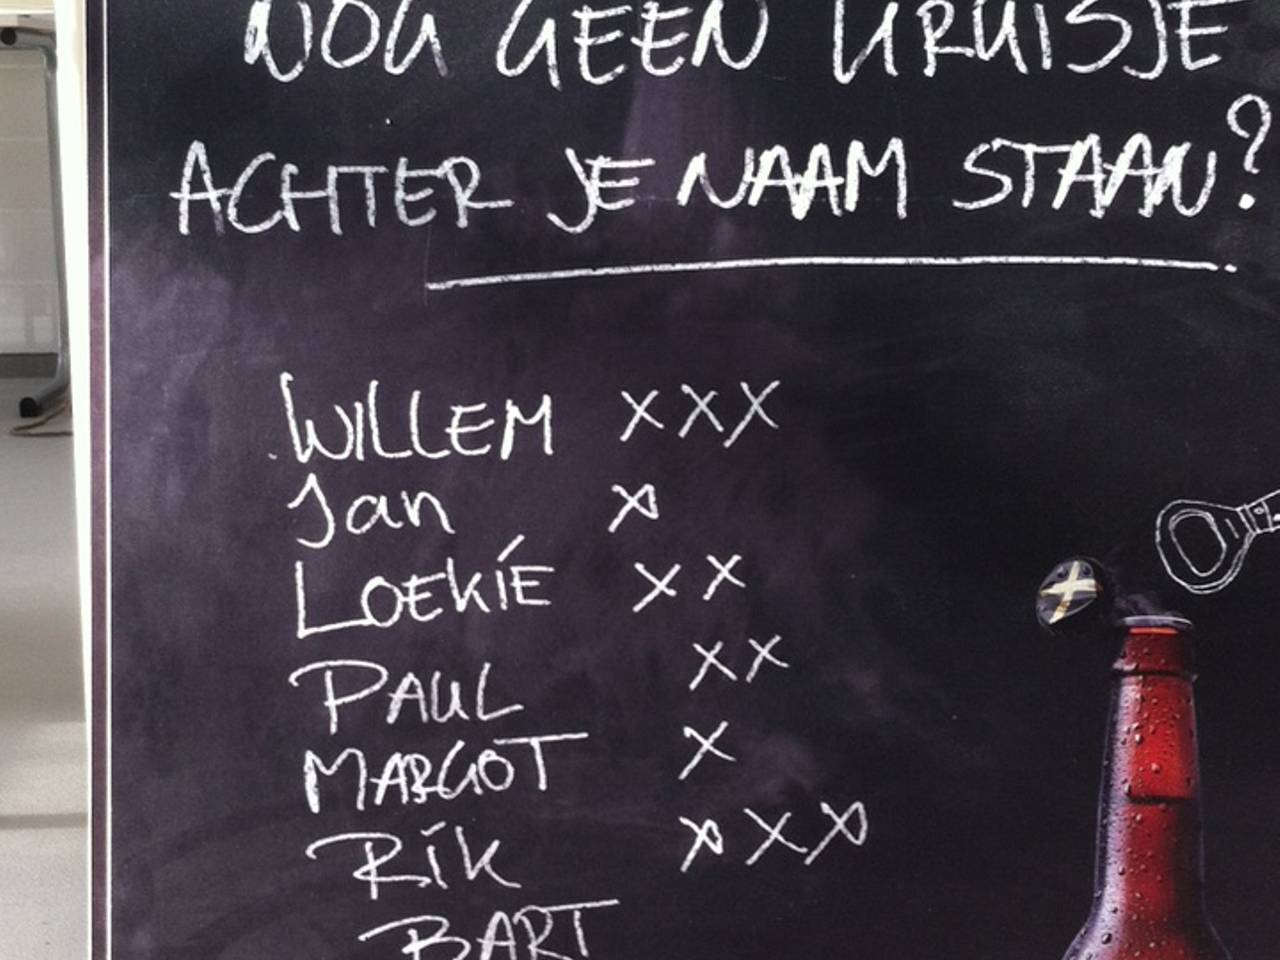 NOG GEEN KRUISJE
ACHTER JE NAAM STAAN?
WILLEM XXX
Jan X
LOEKIE XX
PAUL XX
MARGOT X
RIK XXX
BART